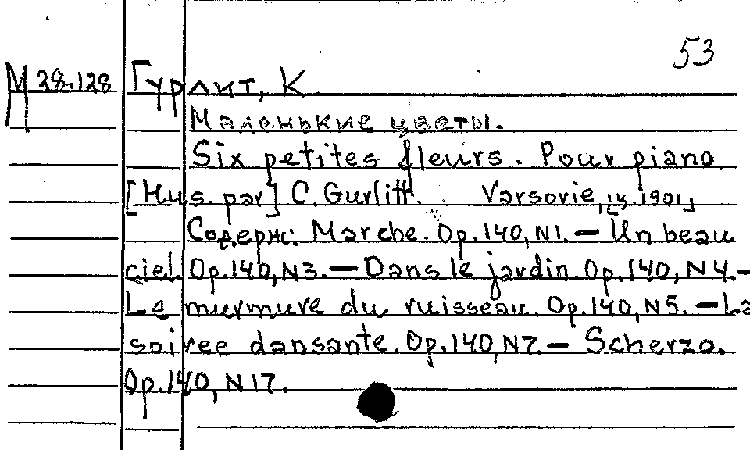 53
М 28.128 Гурлит, К.
Маленькие цветы.
Six petites fleurs. Pour piano
[Mus. par] C. Gurlitt. Varsovie, 1901,
Содерж: Marche. Op.140, N1. — Un beau
ciel. Op.140, N3. — Dans le jardin Op.140, N4. —
Le murmure du ruisseau. Op.140, N5. — La
soiree dansante. Op.140, N7. — Scherzo.
Op.140, N17.